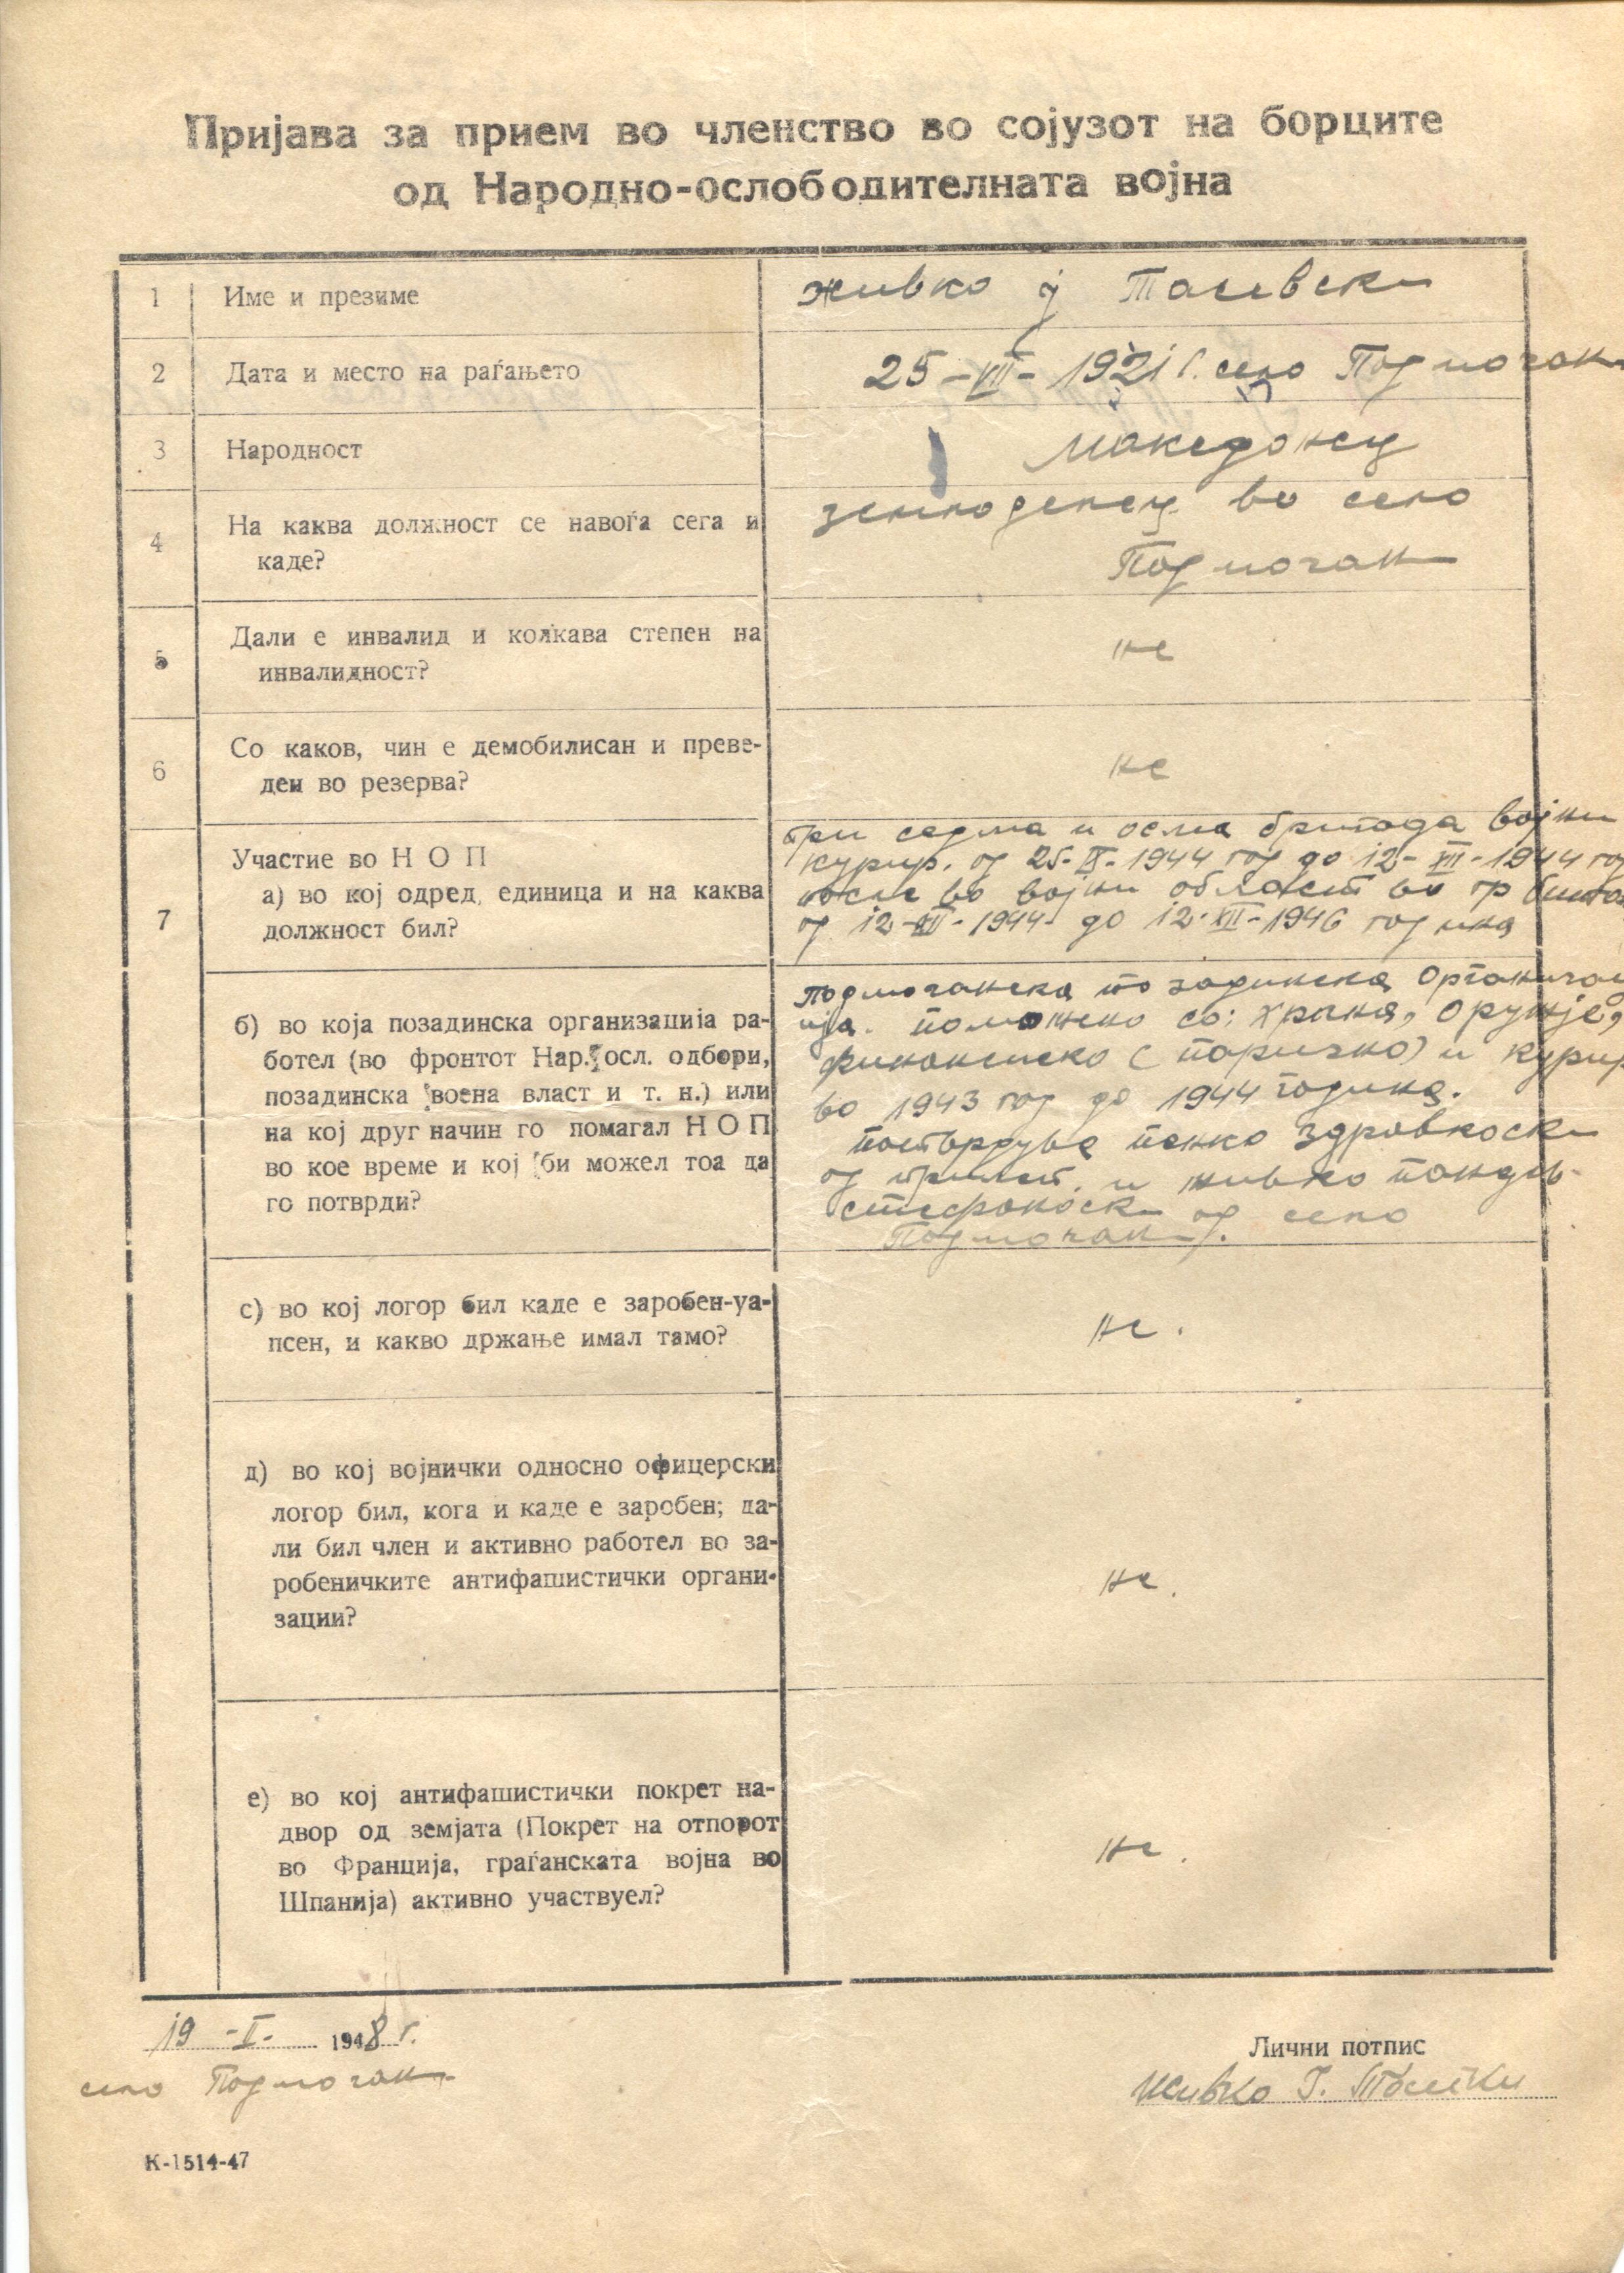 Пријава за прием во членство во сојузот на борците
од Народно-ослободителната војна
1 Име и презиме
живко Ј Тасевски
2 Дата и место на раѓањето
25-VII-1921 г. село Подмочани
3 Народност
Македонец
4 На каква должност се навоѓа сега и
каде?
земјоделец во село
Подмочани
5 Дали е инвалид и колкава степен на
инвалидност?
не
6 Со каков, чин е демобилисан и преве-
ден во резерва?
не
7 Участие во Н О П
а) во кој одред, единица и на каква
должност бил?
при седма и осма бригада војни
курир. од 25-IX-1944 год до 12-XII-1944 год
после во војни област во гр битола
од 12-XII-1944 до 12-XII-1946 година
б) во која позадинска организација ра-
ботел (во фронтот Нар. осл. одбори,
позадинска воена власт и т. н.) или
на кој друг начин го помагал Н О П
во кое време и кој би можел тоа да
го потврди?
подмочанска позадинска Организац
ија. поможено со: храна, оружје,
финансиско (парично) и курир
во 1943 год до 1944 година.
потврдува пенко здравкоски
од и живко
стефаноски од село
Подмочани.
с) во кој логор бил каде е заробен-уа-
псен, и какво држање имал тамо?
не.
д) во кој војнички односно офицерски
логор бил, кога и каде е заробен; да-
ли бил член и активно работел во за-
робеничките антифашистички органи-
зации?
не.
е) во кој антифашистички покрет на-
двор од земјата (Покрет на отпорот
во Франција, граѓанската војна во
Шпанија) активно участвуел?
не.
19 -I- 1948 г.
село Подмочани
Лични потпис
Живко Ј. Тасески
К-1514-47